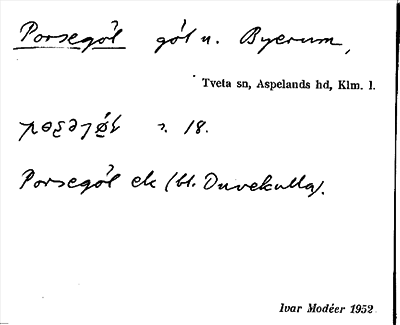 Porsegöl göl u. Byerum,
Tveta sn, Aspelands hd, Klm. l.
18.
Porsegöl ek (bl. Duvekulla).
Ivar Modéer 1952